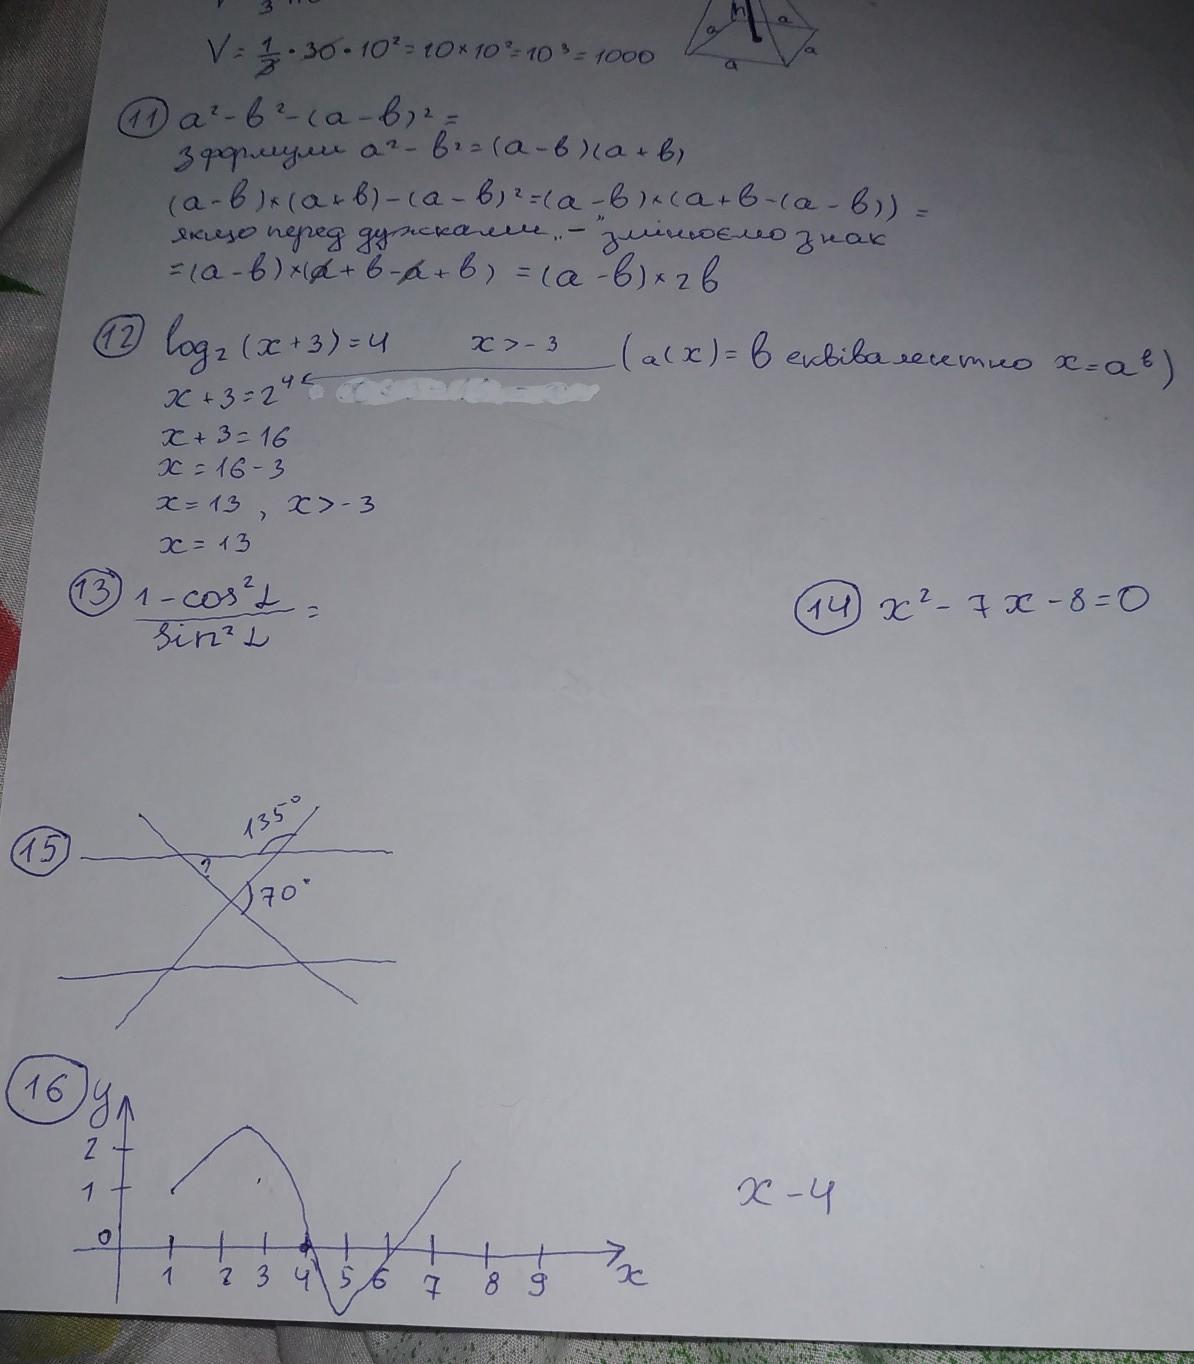 3
V = 1/3 · 30 · 10² = 10 × 10² = 10³ = 1000
h a a a a
11 a² - b² - (a - b)² =
з формули a² - b² = (a - b)(a + b)
(a - b) × (a + b) - (a - b)² = (a - b) × (a + b - (a - b)) =
якщо перед дужками „-" змінюємо знак
= (a - b) × (a + b - a + b) = (a - b) × 2b
12 log₂ (x + 3) = 4 x > - 3 (a(x) = b еквівалентно x = aᵇ)
x + 3 = 2⁴
x + 3 = 16
x = 16 - 3
x = 13 , x > - 3
x = 13
13 (1 - cos² L) / (sin² L) =
14 x² - 7x - 8 = 0
15 135°
?
70°
16 y
2
1 x - 4
0
1 2 3 4 5 6 7 8 9 x